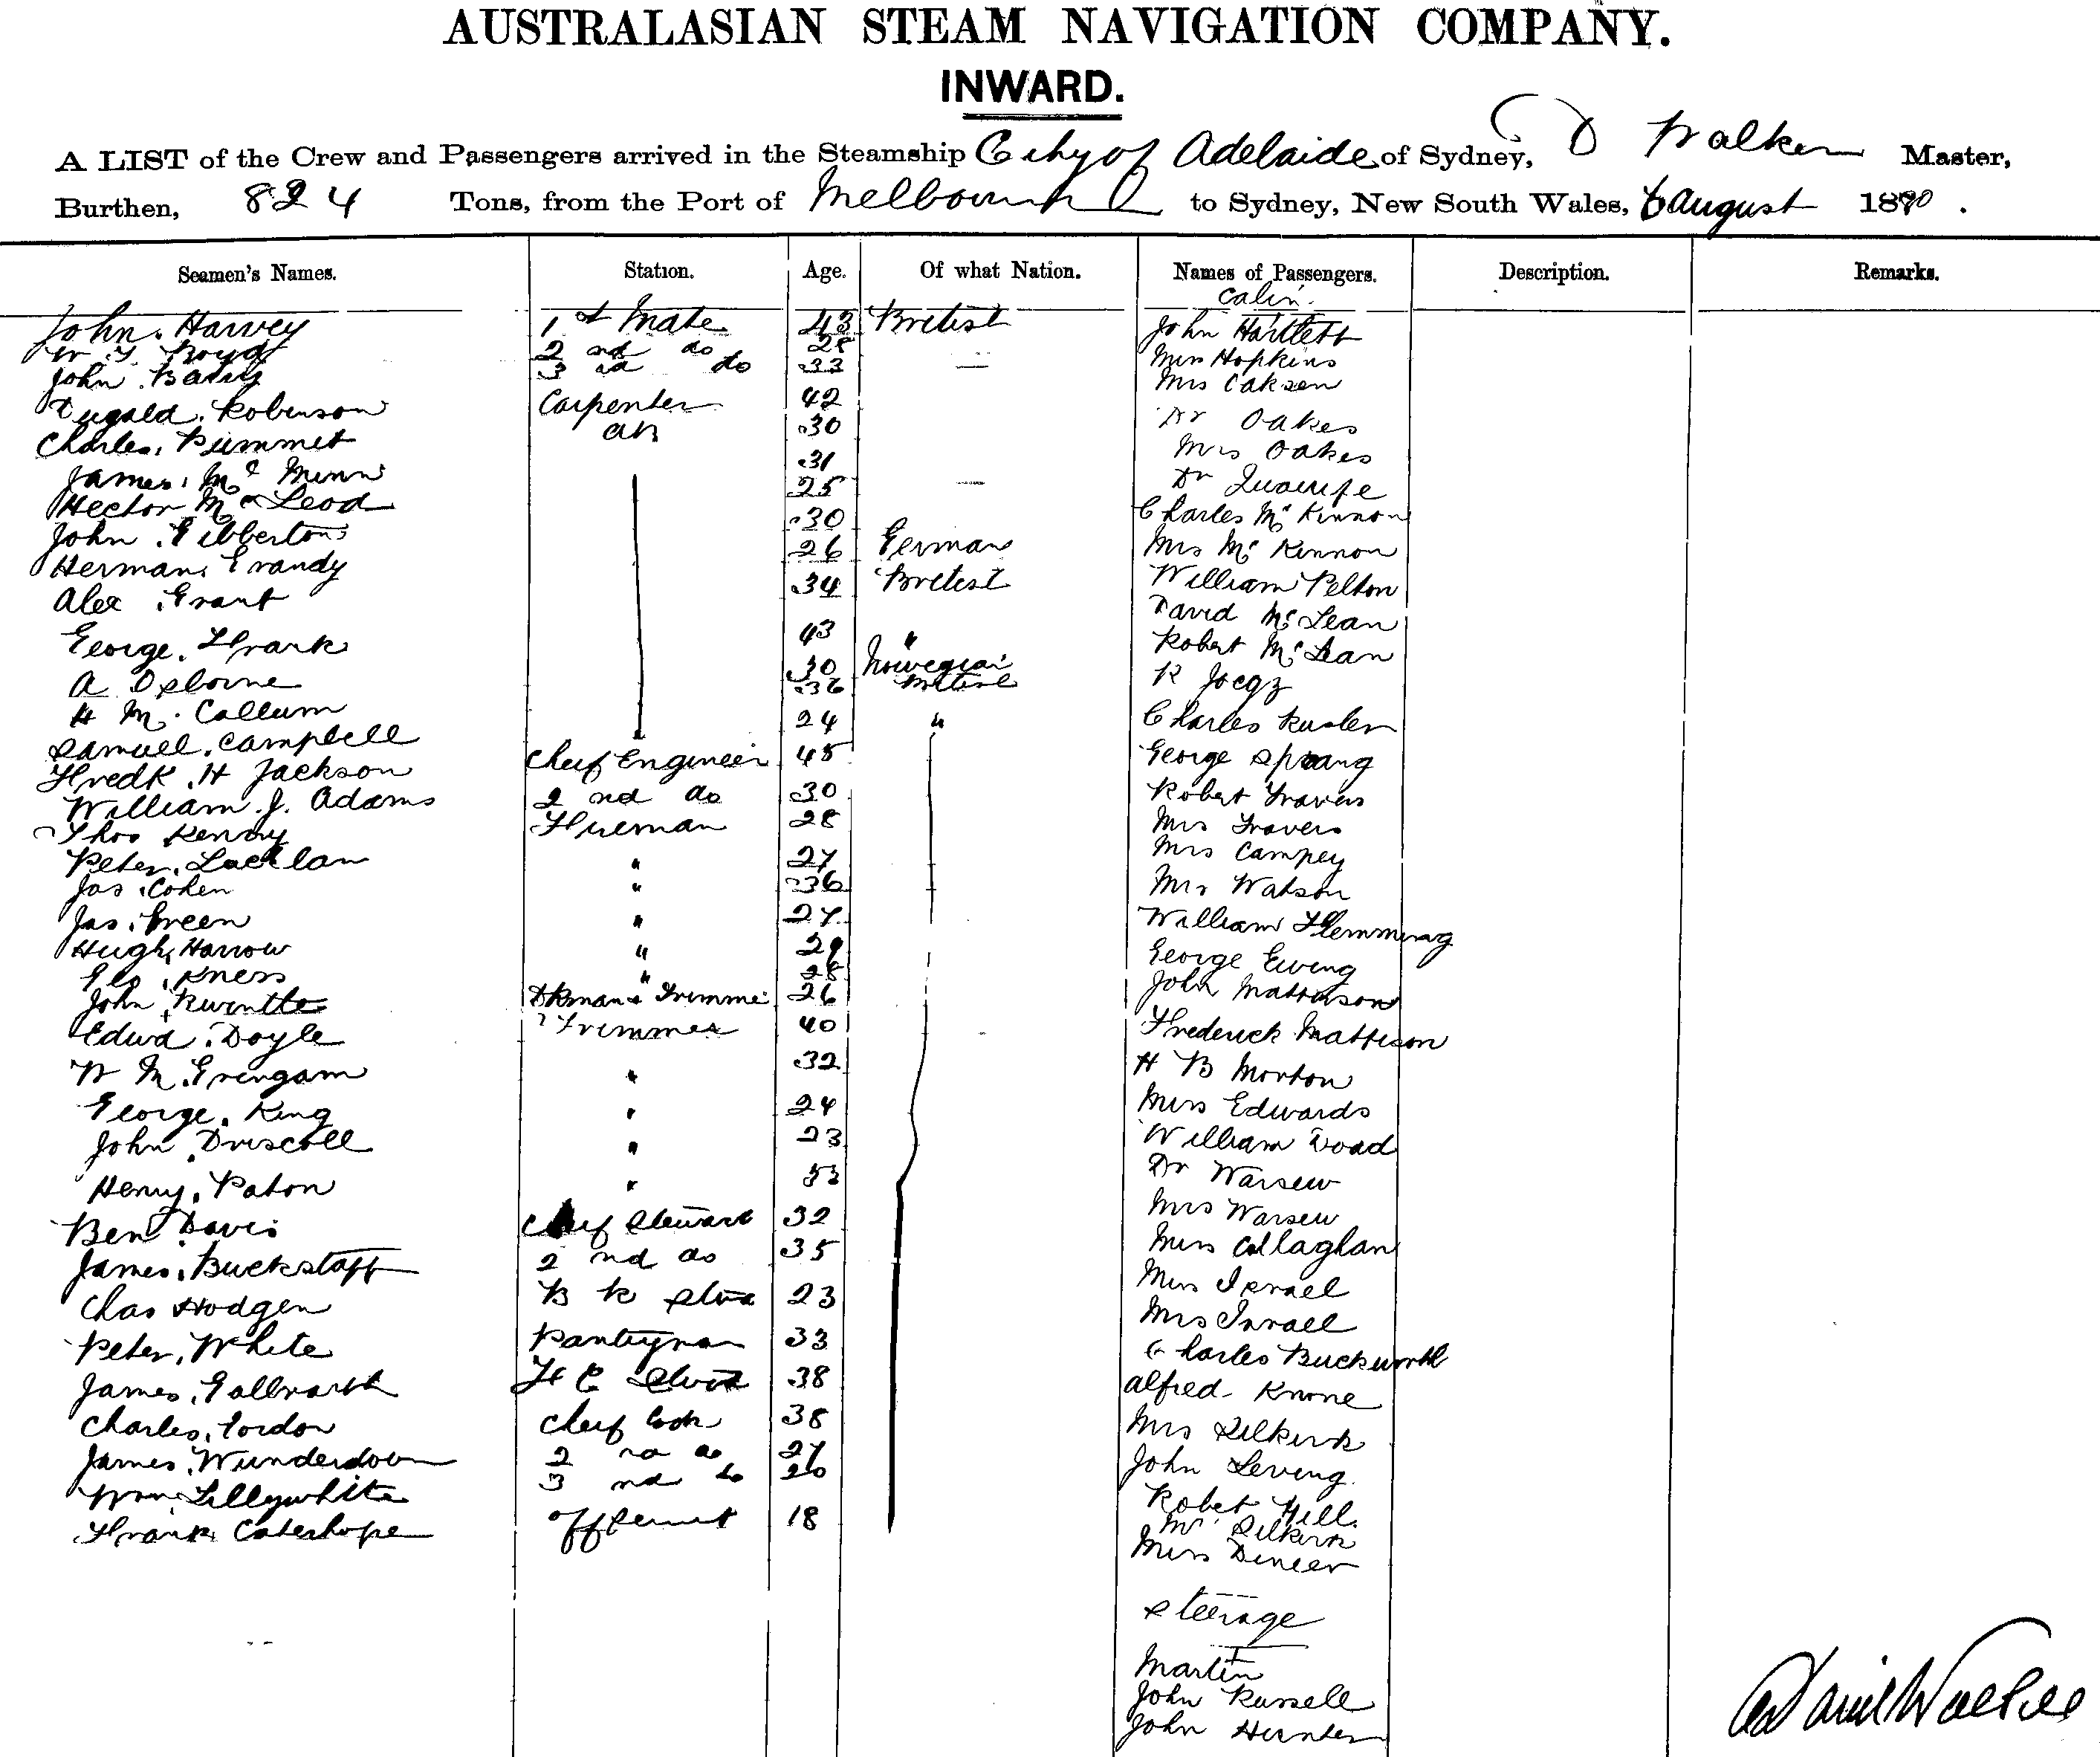 AUSTRALASIAN STEAM NAVIGATION COMPANY.
INWARD.
A LIST of the Crew and Passengers arrived in the Steamship City of Adelaide of Sydney, D Walker Master,
Burthen, 824 Tons, from the Port of Melbourne to Sydney, New South Wales, 6 August 1870.
Seamen's Names. Station. Age. Of what Nation. Names of Passengers. Description. Remarks.
Cabin
John Harvey 1st Mate 43 British John Hartlett
Boyd 2nd do 28 Hopkins
John Barry 3rd do 33 — Mrs
Dugald Robinson Carpenter 42 Dr Oakes
Charles Pummet AB 30 Mrs Oakes
James Mc Minn 31 Dr
Hector McLeod 25 — Charles McKinnon
John Gibbertons 30 Mrs McKinnon
Herman Grandy 26 German William Pelton
Alex Grant 34 British David McLean
George Frank 43 " Robert McLean
A Osborne 30 Norwegian R
H Mc Callum 36 British Charles
Samuel Campbell 24 " George Sprang
Fredk H Jackson Cheif Engineer 45 Robert Travers
William J. Adams 2nd do 30 Mrs Travers
Thos Kenny Fireman 28 Mrs Campey
Peter Lachlan " 27 Mrs Watson
Jas Cohen " 36 William Flemming
Jas Green " 27 George Ewing
Hugh Harrow " 29 John Matterson
Geo Kness " 28 Frederick Mattison
John 26 H B Morton
Edwd Doyle Trimmer 40 Miss Edwards
W M Gringam " 32 William Woad
George King " 24 Dr Warsew
John Driscoll " 23 Mrs Warsew
Henry Paton " 53 Miss Callaghan
Ben Davis Cheif Steward 32 Miss Israel
James Buckstaff 2nd do 35 Mrs Israel
Chas Hodgen 23 Charles Buckworth
Peter White Pantryman 33 Alfred Knone
James Gallvark 38 Mrs Selkirk
Charles Fordon Cheif Cook 38 John Leving
James Wunderdown 2nd do 27 Robet Hill
Wm Lillywhite 3rd do 20 Mr Selkirk
Frank Cateshope 18 Miss
Steerage
Martin
John Russell
John Hunter
Daniel Walker